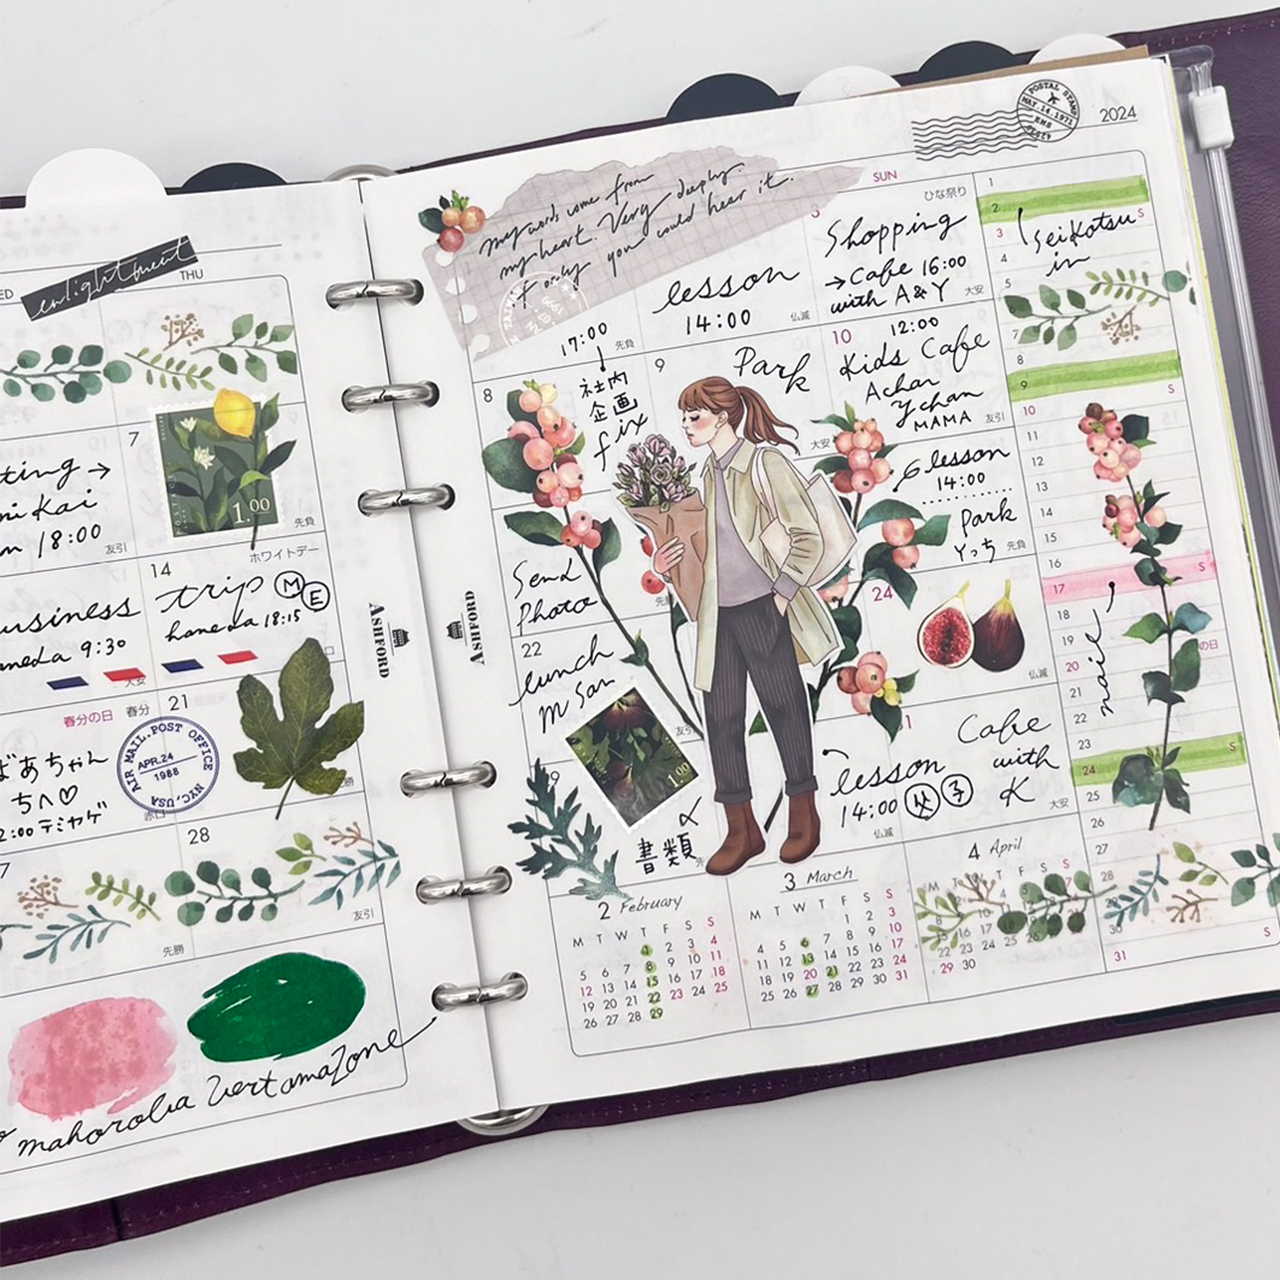 enlightment
THU
7
ting →
ni Kai
m 18:00
友引
先負
ホワイトデー
14
usiness
neda 9:30
大安
trip Ⓜ Ⓔ
haneda 18:15
春分の日
春分
21
ばあちゃん
ちへ♡
2:00 テミヤゲ
赤口
AIR MAIL. POST OFFICE
APR.24
1988
NYC, USA
1.00
28
先勝
友引
mahoroba
Vert amazone
ASHFORD
ASHFORD
2024
POSTAL STAMP
MAY.14.1971
EMS
my words come from
my heart. Very deeply.
If only you could hear it.
17:00
先負
社内
企画
fix
lesson
14:00
仏滅
SUN
3
ひな祭り
Shopping
→ Cafe 16:00
with A&Y
大安
8
9
Park
大安
10
12:00
Kids Cafe
Achan
Ychan
MAMA
友引
lesson
14:00
Park
Yっち
先負
Send
Photo
22
lunch
M San
友引
1.00
24
仏滅
書類
lesson
14:00 ㊛ ㊊
仏滅
Cafe
with
K
大安
2 February
M T W T F S S
1 2 3 4
5 6 7 8 9 10 11
12 13 14 15 16 17 18
19 20 21 22 23 24 25
26 27 28 29
3 March
M T W T F S S
1 2 3
4 5 6 7 8 9 10
11 12 13 14 15 16 17
18 19 20 21 22 23 24
25 26 27 28 29 30 31
4 April
29 30
1
2
3 S
4
5
7
8
9
10 S
11
12
13
14
15
16
17 S
18
19
20 の日
21
22
23
24 S
25
26
27
28
30
31 S
Seikotsu
in
nail